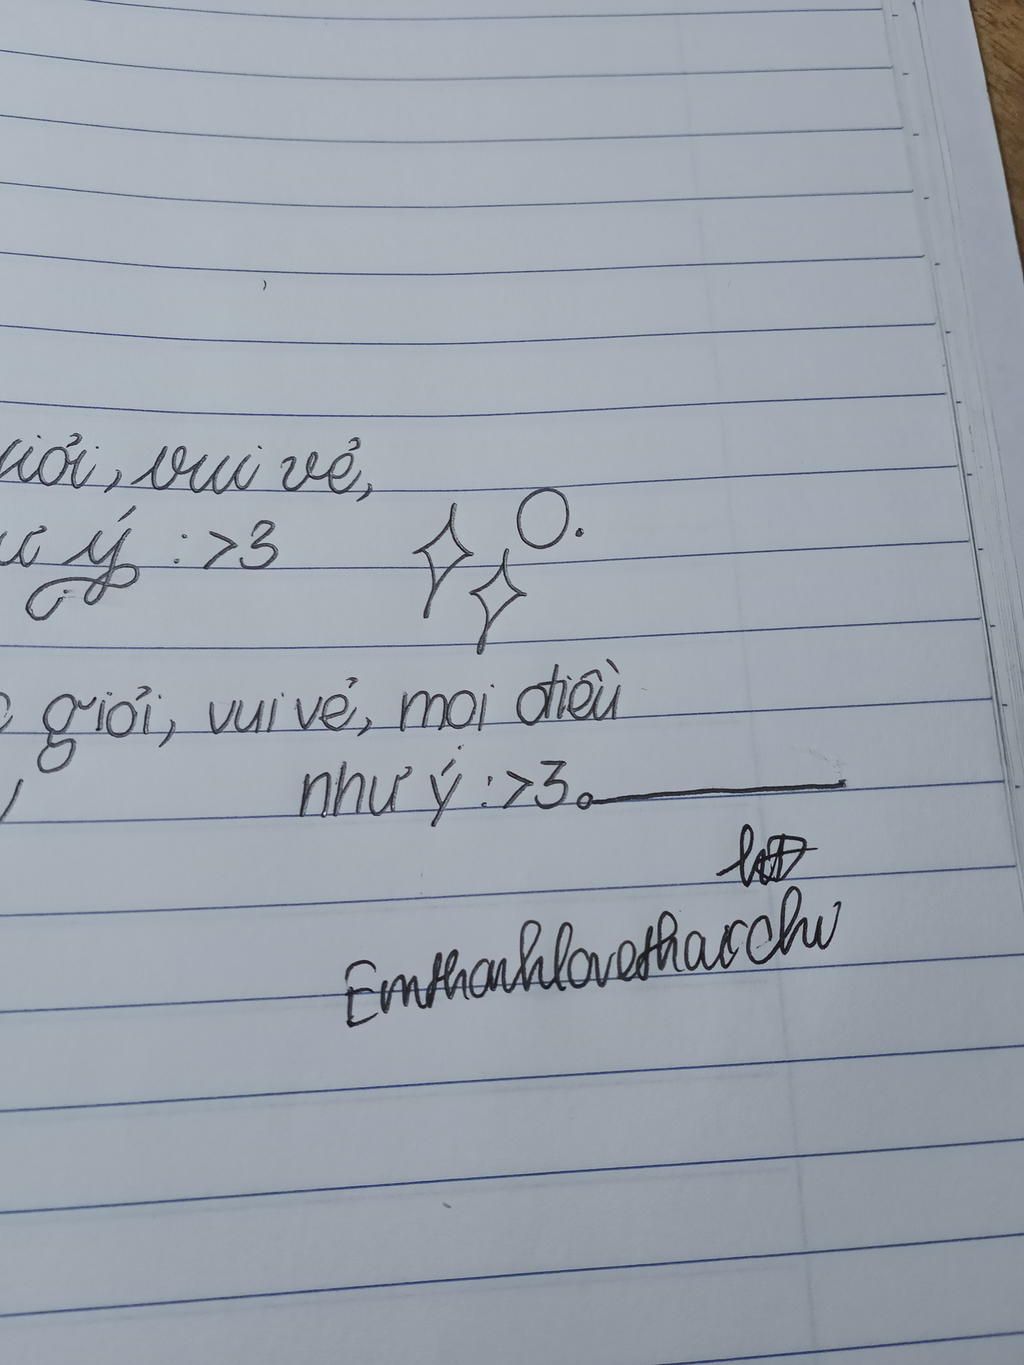 giỏi, vui vẻ,
ý :>3
O.
giỏi, vui vẻ, mọi điều
như ý :>3.
Emthanhlovethacchu